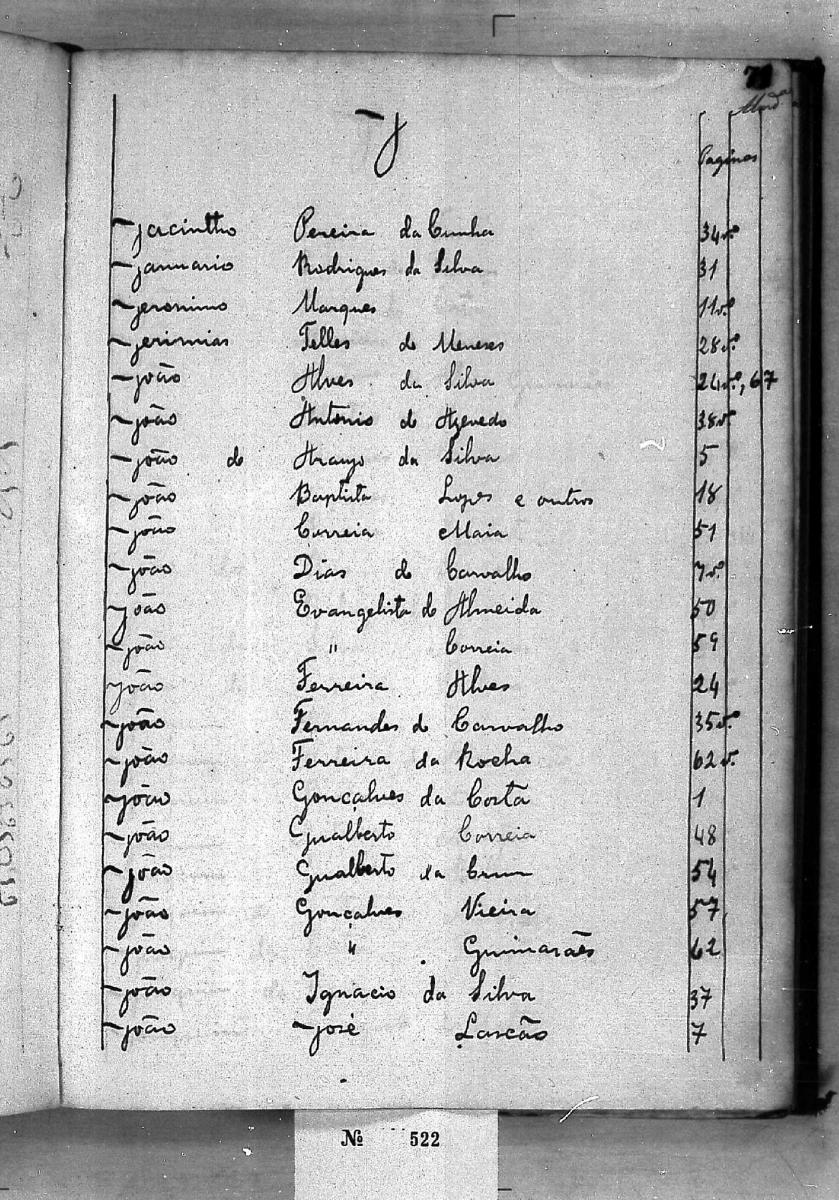 J
Paginas
Jacintho Pereira da Cunha 34 vº
Januario Rodrigues da Silva 31
Jeronimo Marques 11 vº
Jerimias Telles de Meneses 28 vº
João Alves da Silva 24 vº, 67
João Antonio de Azevedo 38 vº
João de Araujo da Silva 5
João Baptista Lopes e outros 18
João Correia Maia 51
João Dias de Carvalho 7 vº
João Evangelista de Almeida 50
João " Correia 59
João Ferreira Alves 24
João Fernandes de Carvalho 35 vº
João Ferreira da Rocha 62 vº
João Gonçalves da Costa 1
João Gualberto Correia 48
João Gualberto da Cruz 54
João Gonçalves Vieira 57
João " Guimarães 62
João Ignacio da Silva 37
João José Lascão 7
Nº 522